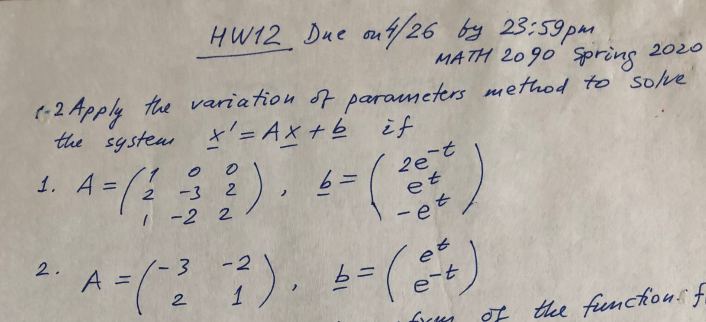 HW12 Due on 4/26 by 23:59pm
MATH 2090 Spring 2020
1-2 Apply the variation of parameters method to solve
the system x' = Ax + b if
1. A = ( 1 0 0
2 -3 2
1 -2 2 ), b = ( 2e^-t
e^t
-e^t )
2. A = ( -3 -2
2 1 ), b = ( e^t
e^-t )
of the function f